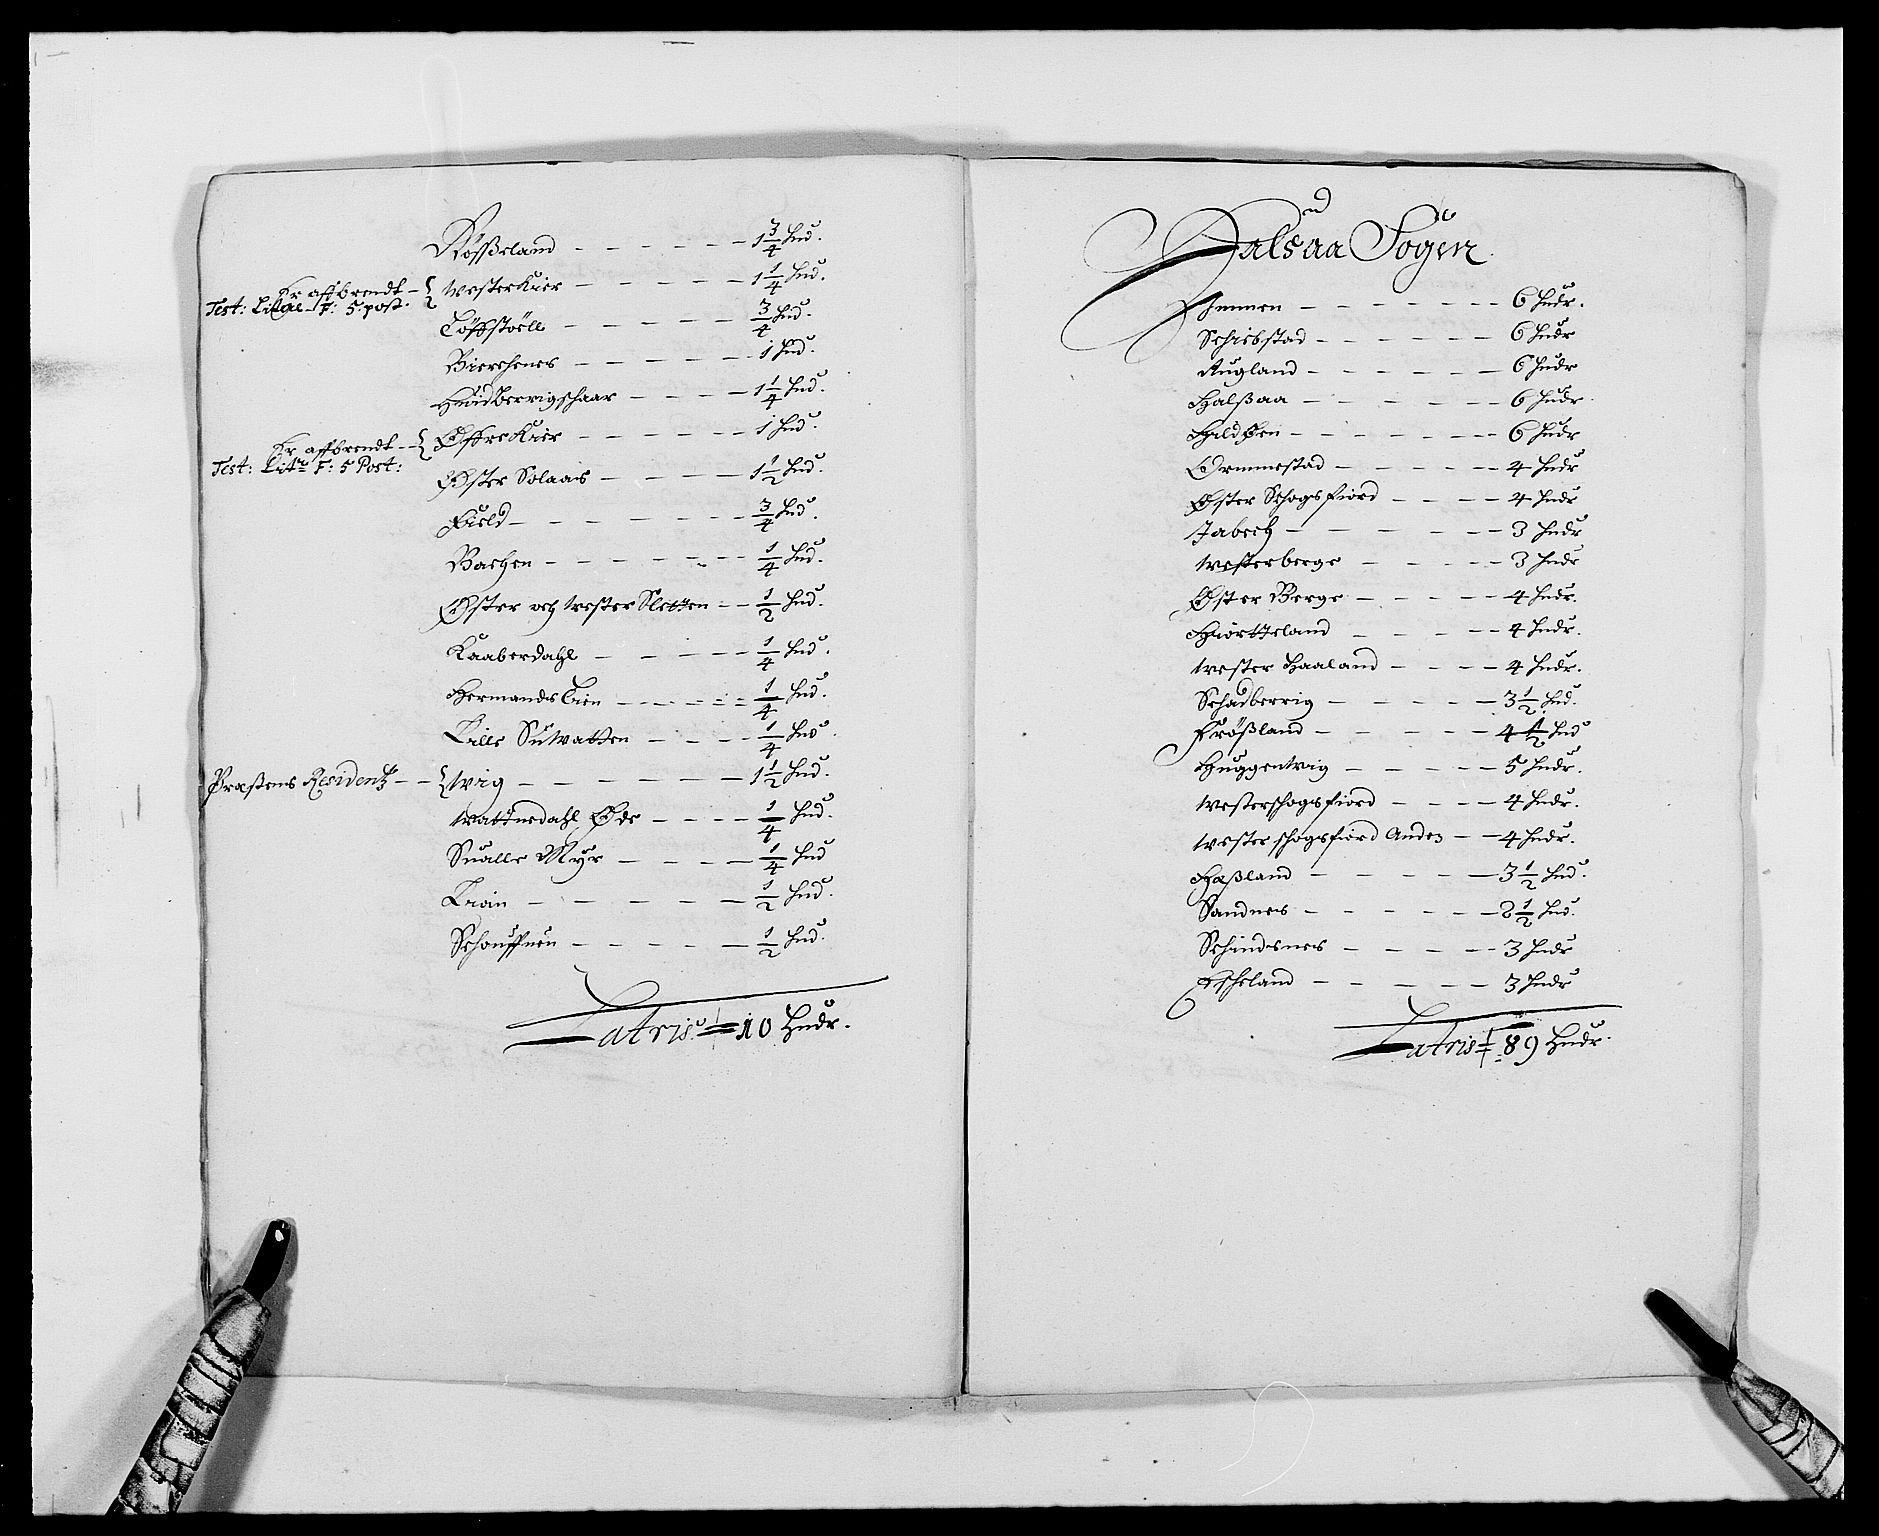 Røsseland — 1 3/4 Hud.
Er affbrendt — { Westerkier — 1 1/4 Hud.
Test: Litae F: 5. post.
Løffstoell — 3/4 Hud.
Bierchenes — 1 Hud.
Huidberrigschaar — 1 1/4 Hud.
Er affbrendt — { Øffre Kier — 1 Hud.
Test: Litr F: 5 Post:
Øster Solaas — 1 1/2 Hud.
Field — 3/4 Hud.
Bachen — 1/4 Hud.
Øster och wester Sletten — 1/2 Hud.
Kaaberdahl — 1/4 Hud.
Hermandslien — 1/4 Hud.
Lille Suwatten — 1/4 Hud.
Præstens Residentz — { wiig — 1 1/2 Hud.
wattnedahl Øde — 1/4 Hud.
Sualle Myr — 1/4 Hud
Lian — 1/2 Hud.
Schouffuen — 1/2 Hud.
Latris — 10 Hudr.
Halsaa Sogen
Ammen — 6 Hudr.
Schiebstad — 6 Hudr
Augland — 6 Hudr
Halßaa — 6 Hudr.
Hald Øen — 6 Hudr
Ormmestad — 4 Hudr
Øster Schogsfiord — 4 Hudr
Jabech — 3 Hudr
westerberge — 3 Hudr
Øster Berge — 4 Hudr.
Hiortteland — 4 Hudr.
wester Haaland — 4 Hudr.
Schadberrig — 3 1/2 Hud.
Frøßland — 4 1/2 Hud
Huggenwig — 5 Hudr.
westerschogsfiord — 4 Hudr.
wester schogsfiord Anden — 4 Hudr.
Haßland — 3 1/2 Hud.
Sandnes — 2 1/2 Hud.
Schindsnes — 3 Hudr
Escheland — 3 Hudr
Latris — 89 Hudr.